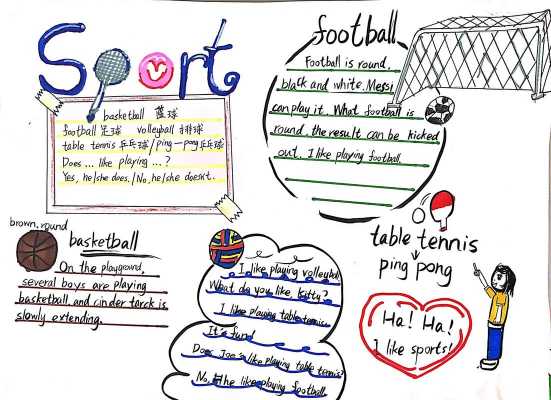 Sport
basketball 篮球
football 足球 volleyball 排球
table tennis 乒乓球/ping-pong乒乓球
Does ... like playing ...?
Yes, he/she does./No, he/she doesn't.
football
Football is round,
black and white. Messi
can play it. What football is
round, the result can be kicked
out. I like playing football.
brown, round
basketball
On the playground,
several boys are playing
basketball and cinder tarck is
slowly extending.
I like playing volleyball
What do you like, kitty?
I like playing table tennis.
It's fund
Does Joe's like playing table tennis?
No, he like playing football.
table tennis
ping pong
Ha! Ha!
I like sports!